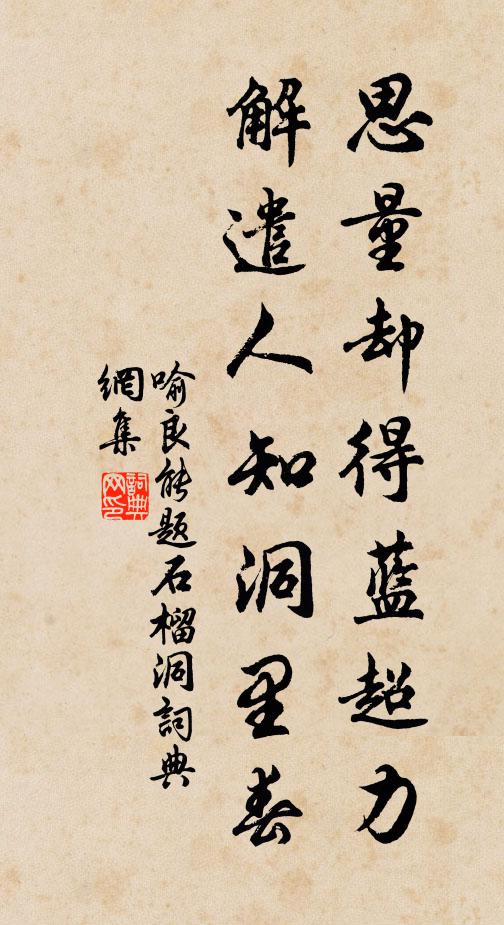 思量却得藍超力
解遣人知洞里春
喻良能题石榴洞詞典
網集
詞典
网印